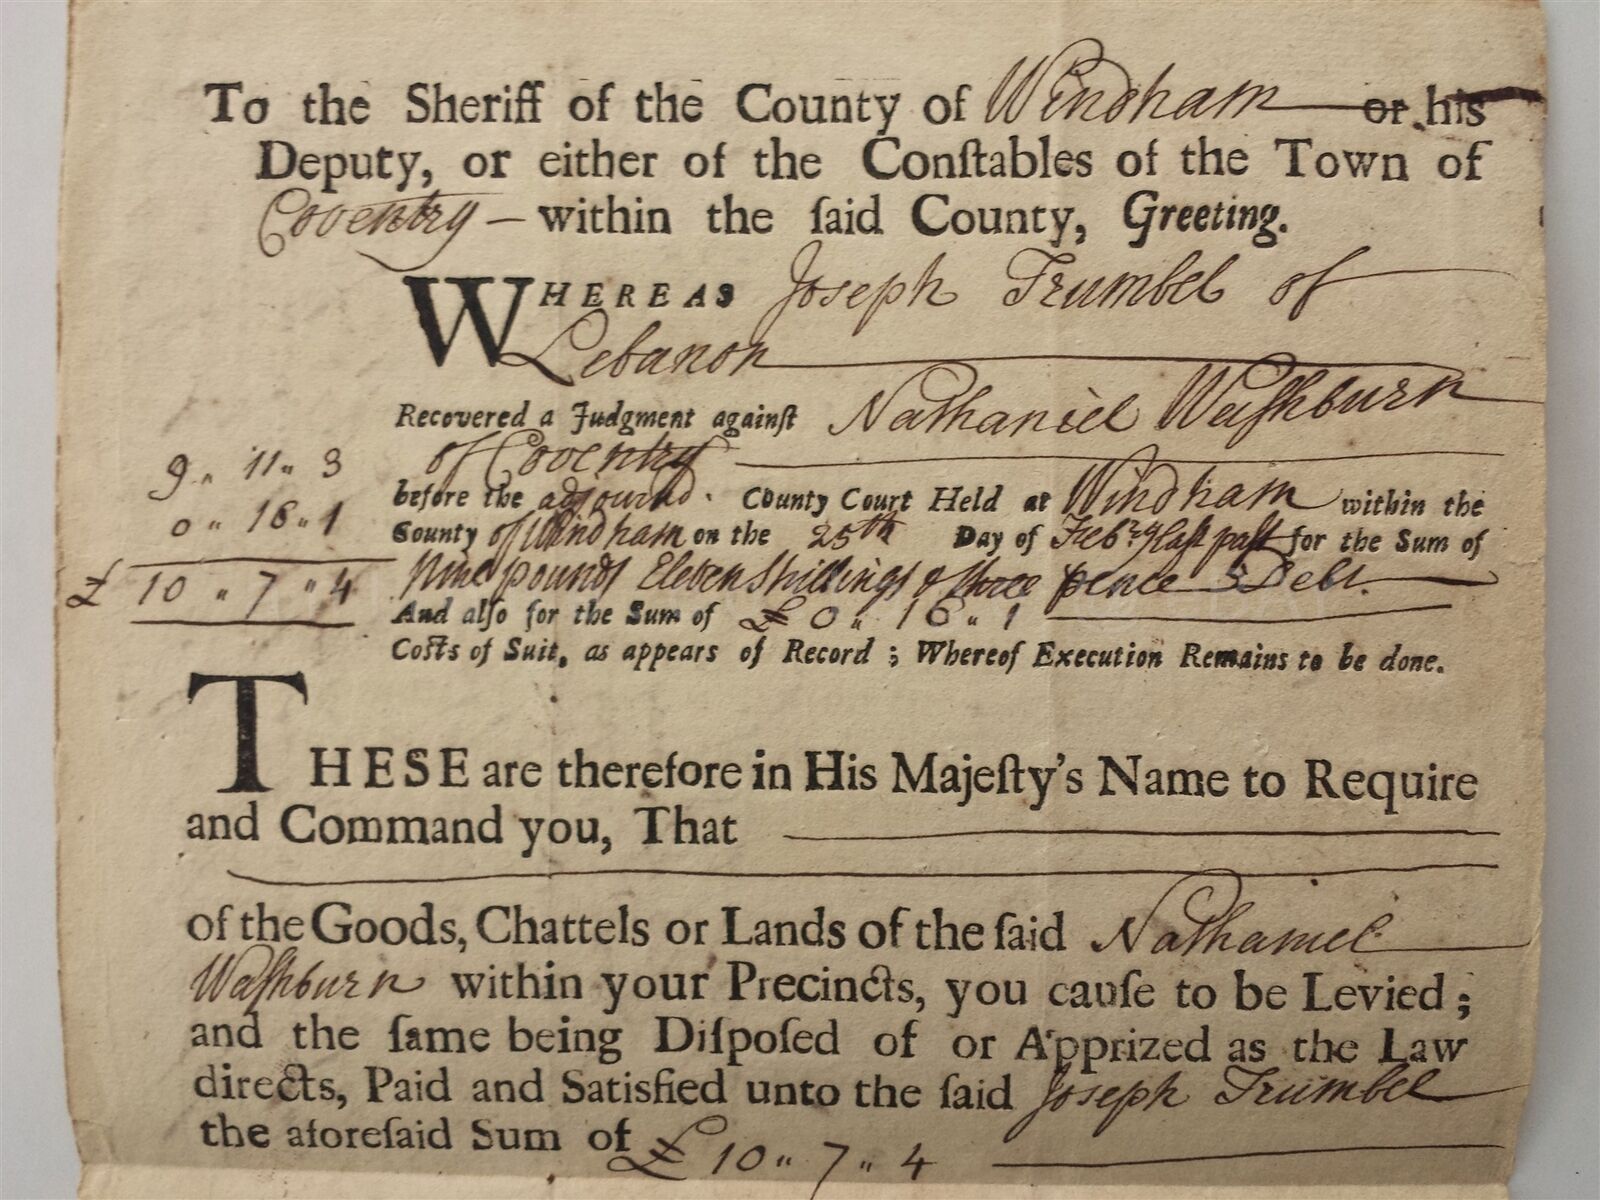 To the Sheriff of the County of Windham or his
Deputy, or either of the Conſtables of the Town of
Coventry – within the ſaid County, Greeting.
WHEREAS Joseph Trumbel of
Lebanon
Recovered a Judgment againſt Nathaniel Waſhburn
of Coventry
9 „ 11 „ 3
before the adjournd. County Court Held at Windham within the
0 „ 16 „ 1
County of Windham on the 25th Day of Febry laſt paſt for the Sum of
£ 10 „ 7 „ 4
Nine pounds Eleven Shillings & three pence Debt.
And alſo for the Sum of £ 0 „ 16 „ 1
Coſts of Suit, as appears of Record ; Whereof Execution Remains to be done.
THESE are therefore in His Majeſty's Name to Require
and Command you, That
of the Goods, Chattels or Lands of the ſaid Nathaniel
Waſhburn within your Precincts, you cauſe to be Levied ;
and the ſame being Diſpoſed of or Apprized as the Law
directs, Paid and Satisfied unto the ſaid Joseph Trumbel
the aforeſaid Sum of £ 10 „ 7 „ 4